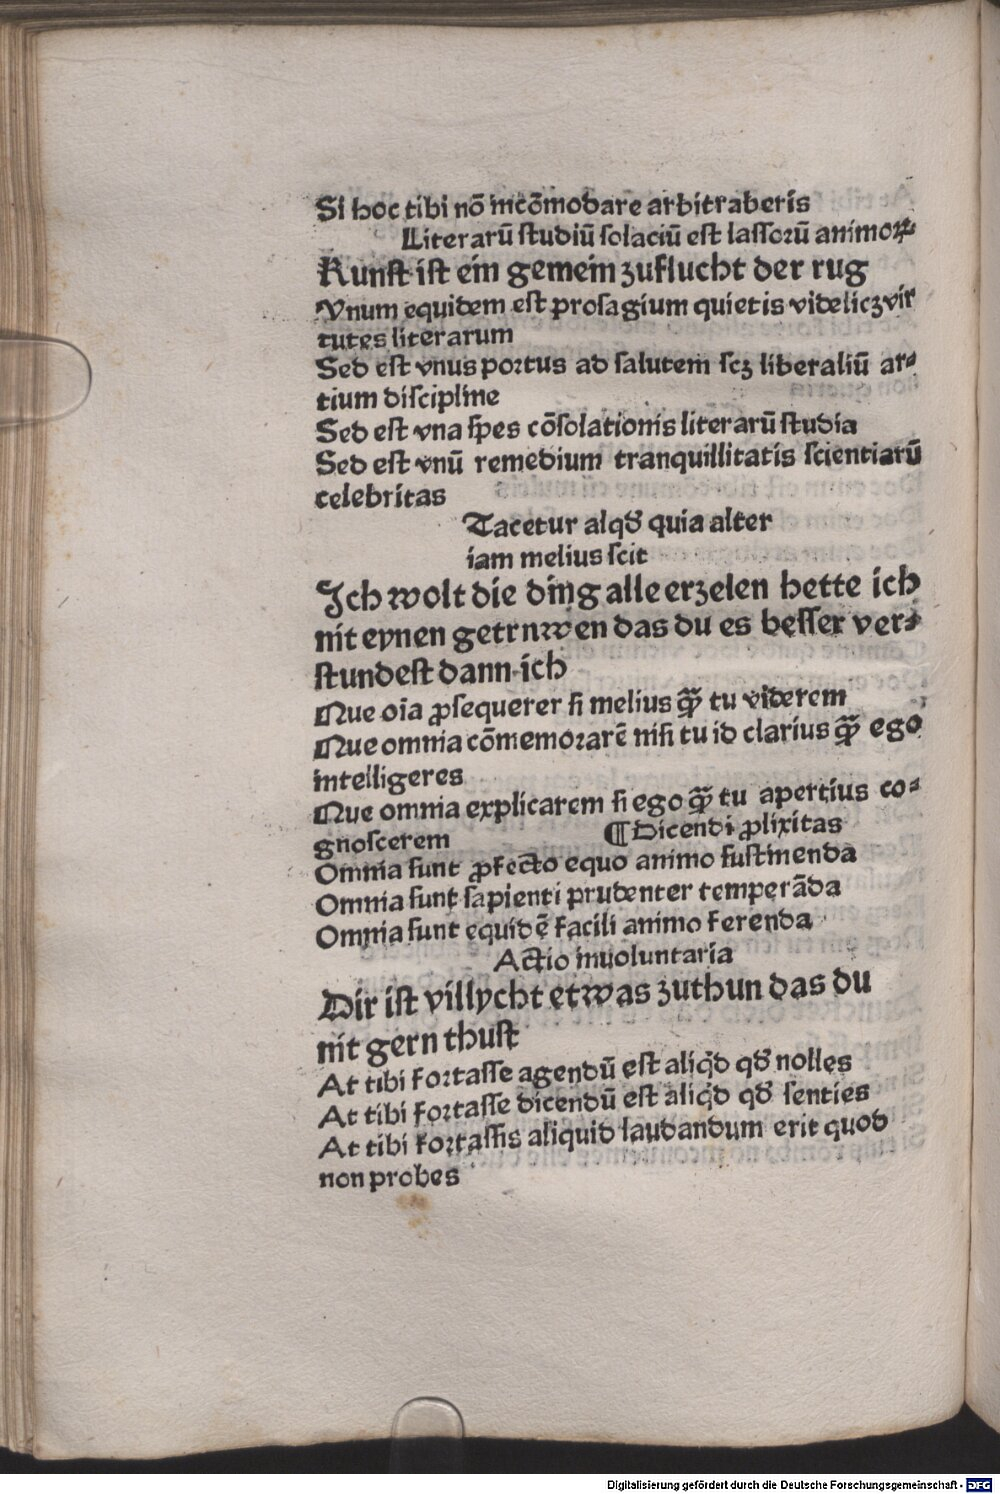 Si hoc tibi nō incōmodare arbitraberis
Literarū studiū solaciū est lassorū animoꝝ
Kunst ist ein gemein zuflucht der rug
Vnum equidem est prosagium quietis videlicꝫ vir
tutes literarum
Sed est vnus portus ad salutem scꝫ liberaliū ar⸗
tium discipline
Sed est vna spes cōsolationis literarū studia
Sed est vnū remedium tranquillitatis scientiarū
celebritas
Tacetur alqd̛ quia alter
iam melius scit
Ich wolt die ding alle erzelen hette ich
nit eynen getrnwen das du es besser ver⸗
stundest dann ich
Que oīa ꝓsequerer si melius qꝫ̄ tu viderem
Que omnia cōmemorarē nisi tu id clarius qꝫ̄ ego
intelligeres
Que omnia explicarem si ego qꝫ̄ tu apertius co⸗
gnoscerem ¶ Dicendi ꝓlixitas
Omnia sunt ꝓfecto equo animo sustinenda
Omnia sunt sapienti prudenter temperāda
Omnia sunt equidē facili animo ferenda
Actio inuoluntaria
Dir ist villycht etwas zuthun das du
nit gern thust
At tibi fortasse agendū est aliq̇d qd̛ nolles
At tibi fortasse dicendū est aliq̇d qd̛ senties
At tibi fortassis aliquid laudandum erit quod
non probes
Digitalisierung gefördert durch die Deutsche Forschungsgemeinschaft - DFG